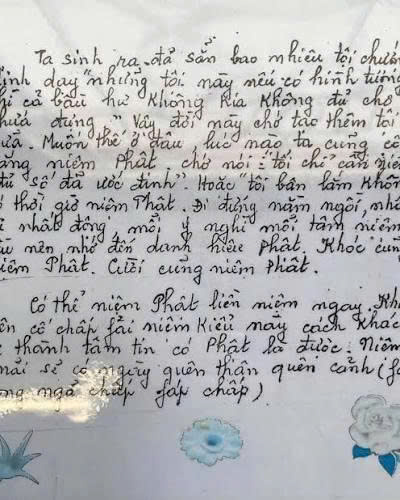 Ta sinh ra đã sẵn bao nhiêu tội chướng
dạy "những tội này nếu có hình tướng
cả bầu hư không kia không đủ chỗ
chứa đựng" Vậy đời này chớ tác thêm tội
. Muốn thế ở đâu, lúc nào ta cũng cố
niệm Phật. chớ nói: "tôi chỉ cần niệm
đủ số đã ước định". Hoặc "tôi bận lắm không
thời giờ niệm Phật. Đi đứng nằm ngồi,
nhất động, mỗi ý nghĩ mỗi tâm niệm
nên nhớ đến danh hiệu Phật. Khóc cũng
niệm Phật. Cười cũng niệm Phật.
Có thể niệm Phật liền niệm ngay
cố chấp fải niệm kiểu này cách khác
thành tâm tin có Phật là được. Niệm
mãi sẽ có ngày quên thân quên cảnh
ngã chấp fáp chấp)